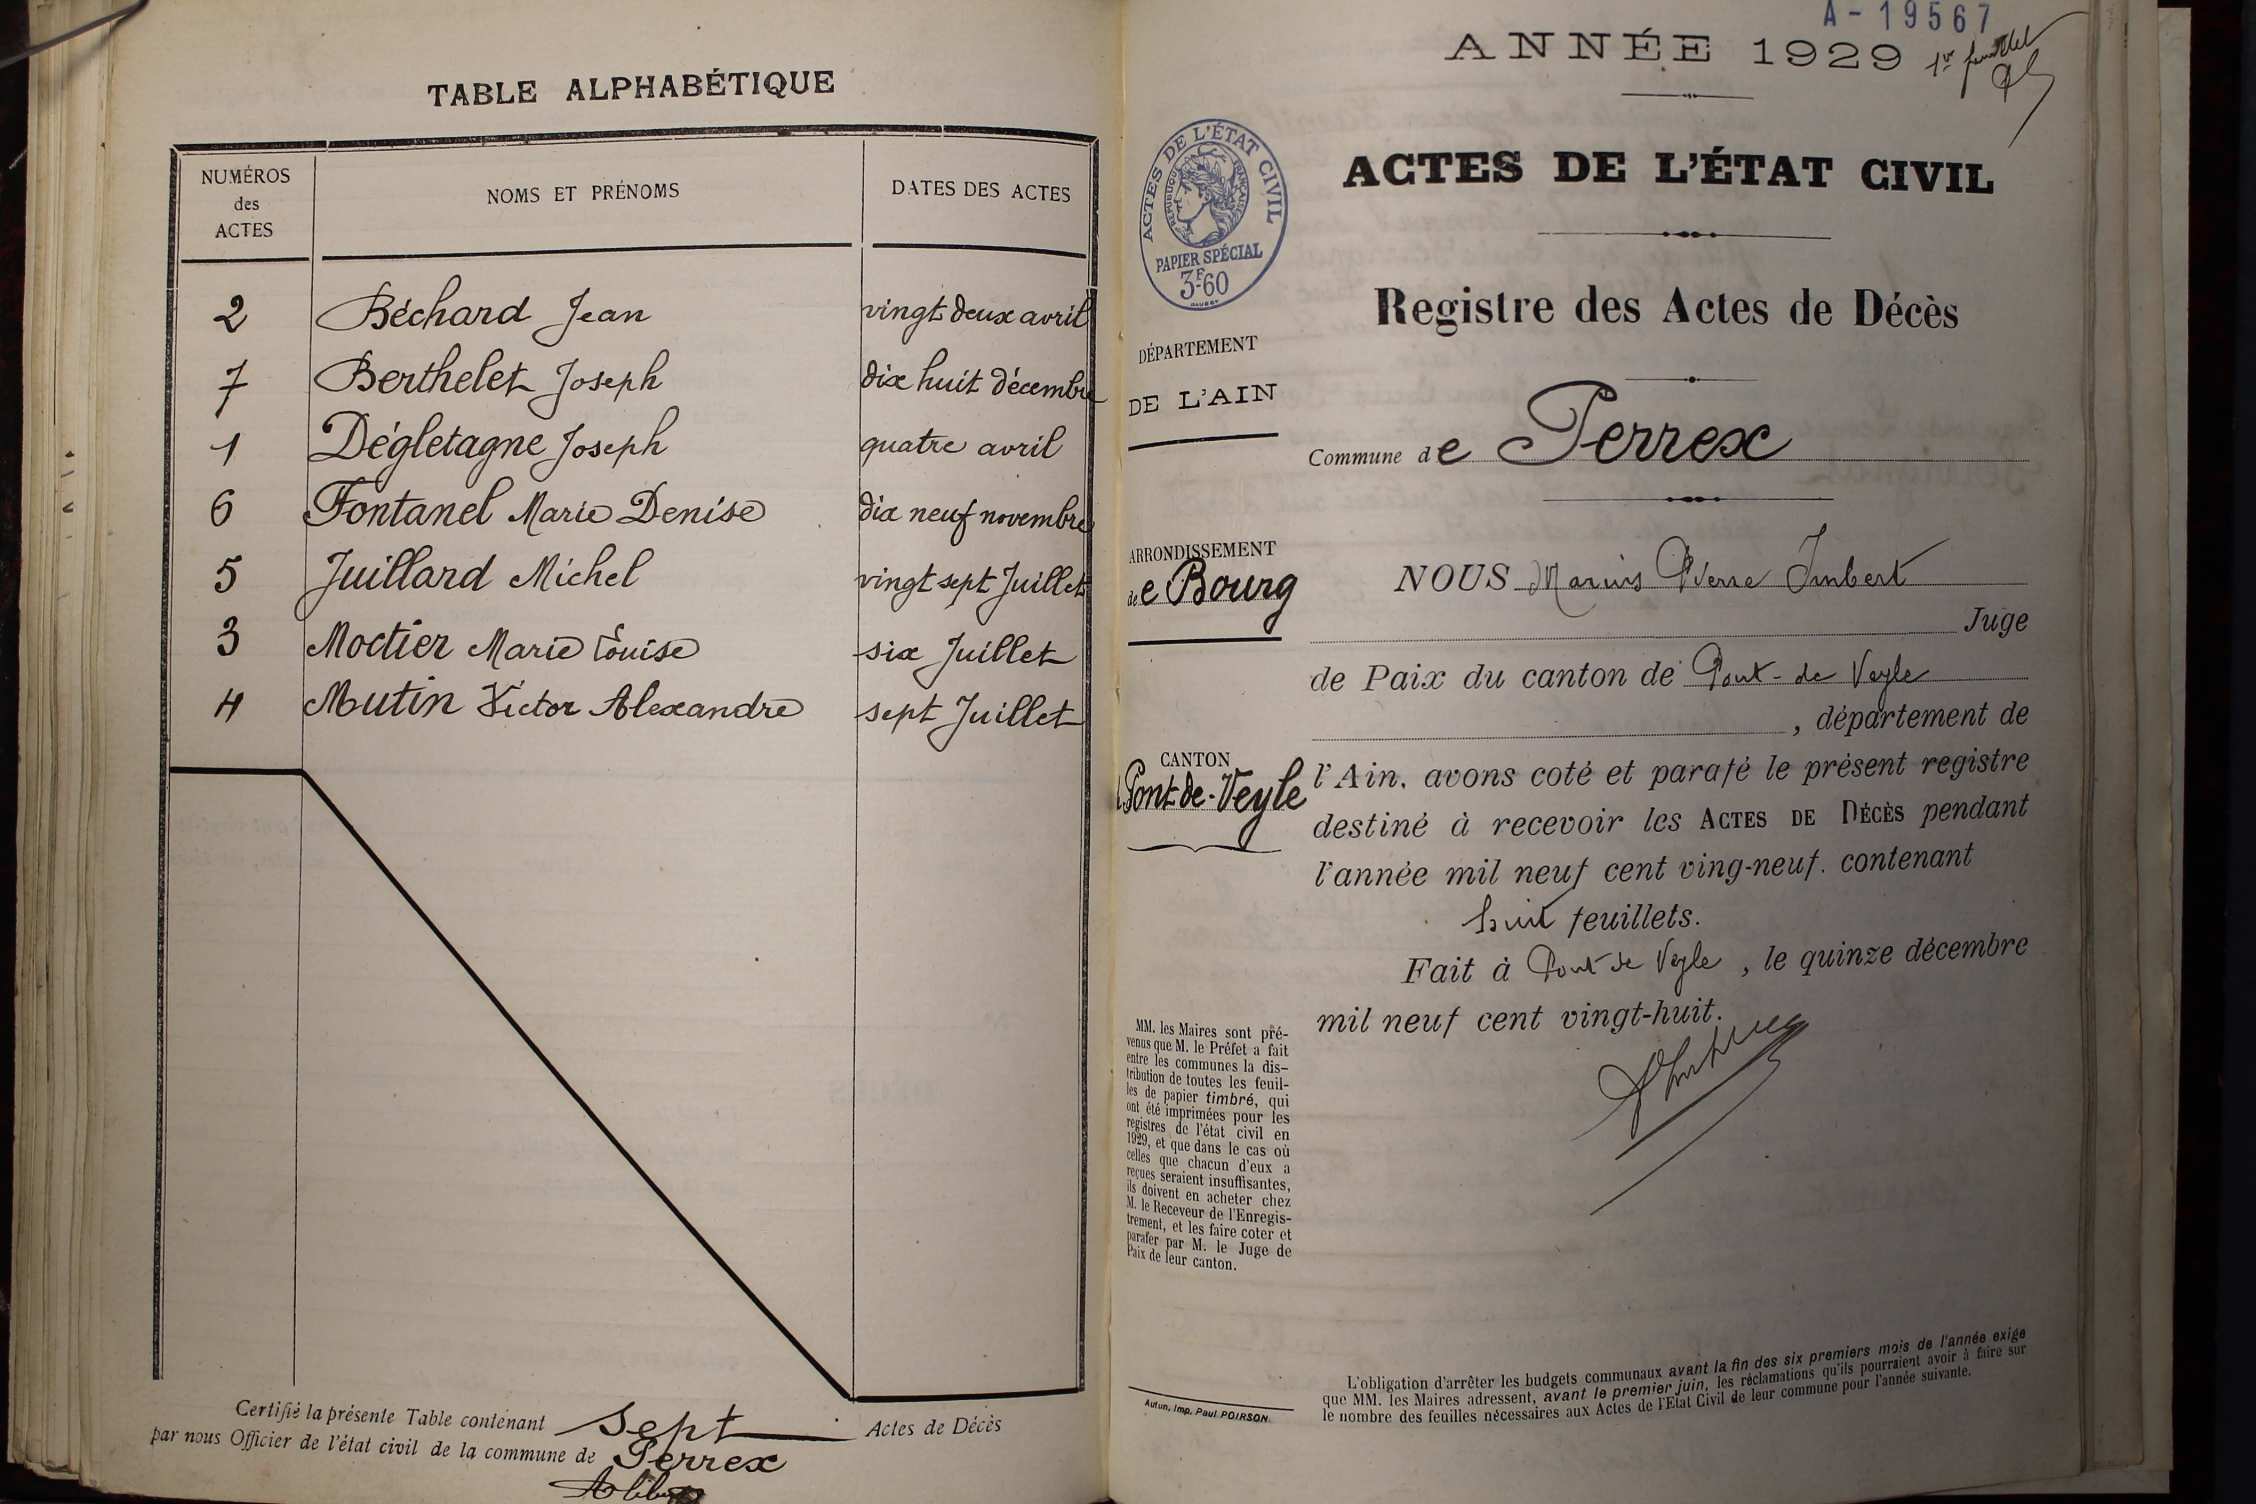 TABLE ALPHABÉTIQUE
NUMÉROS
des
ACTES
NOMS ET PRÉNOMS
DATES DES ACTES
2 Béchard Jean vingt deux avril
7 Berthelet Joseph dix huit décembre
1 Dégletagne Joseph quatre avril
6 Fontanel Marie Denise dix neuf novembre
5 Juillard Michel vingt sept Juillet
3 Moctier Marie Louise six Juillet
4 Mutin Victor Alexandre sept Juillet
Certifié la présente Table contenant sept Actes de Décès
par nous Officier de l'état civil de la commune de Perrex
A-19567
ANNÉE 1929
1er feuillet
ACTES DE L'ÉTAT CIVIL
RÉPUBLIQUE FRANÇAISE
PAPIER SPÉCIAL
3F60
ACTES DE L'ÉTAT CIVIL
Registre des Actes de Décès
DÉPARTEMENT
DE L'AIN
Commune de Perrex
ARRONDISSEMENT
de Bourg
CANTON
Pont-de-Veyle
NOUS Marius Pierre Imbert
Juge
de Paix du canton de Pont-de Veyle
, département de
l'Ain, avons coté et parafé le présent registre
destiné à recevoir les ACTES DE DÉCÈS pendant
l'année mil neuf cent ving-neuf. contenant
huit feuillets.
Fait à Pont de Veyle, le quinze décembre
mil neuf cent vingt-huit.
MM. les Maires sont pré-
venus que M. le Préfet a fait
entre les communes la dis-
tribution de toutes les feuil-
les de papier timbré, qui
ont été imprimées pour les
registres de l'état civil en
1929, et que dans le cas où
celles que chacun d'eux a
reçues seraient insuffisantes,
ils doivent en acheter chez
M. le Receveur de l'Enregis-
trement, et les faire coter et
parafer par M. le Juge de
Paix de leur canton.
Autun, Imp. Paul POIRSON.
L'obligation d'arrêter les budgets communaux avant la fin des six premiers mois de l'année exige
que MM. les Maires adressent, avant le premier juin, les réclamations qu'ils pourraient avoir à faire sur
le nombre des feuilles nécessaires aux Actes de l'Etat Civil de leur commune pour l'année suivante.